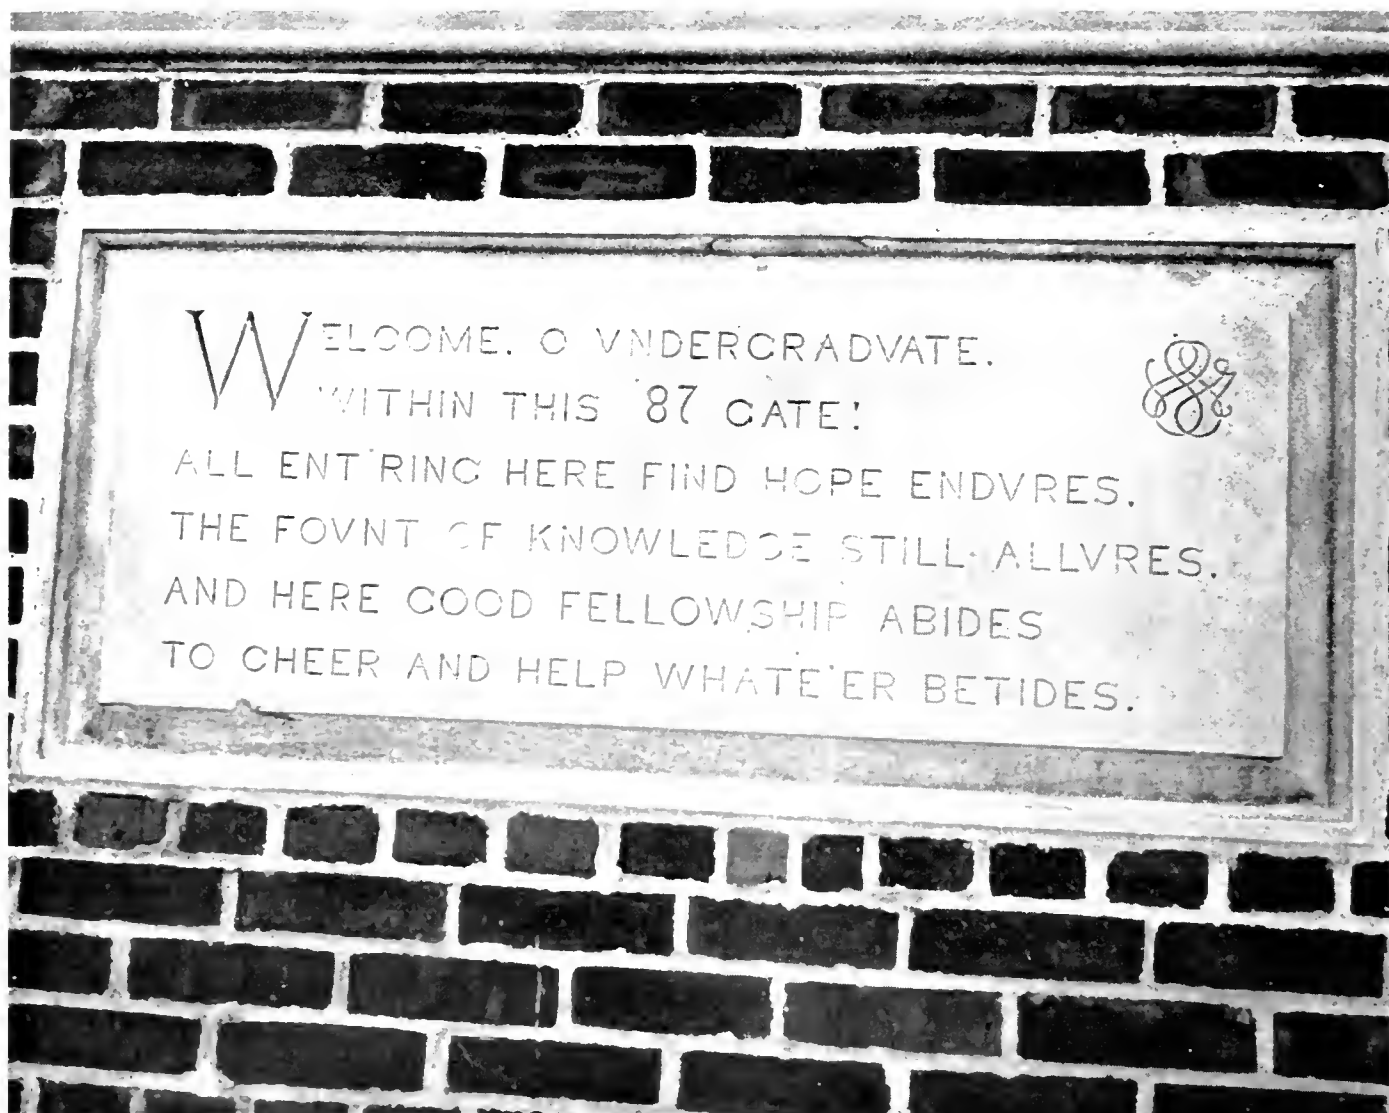 WELCOME, O VNDERGRADVATE,
WITHIN THIS '87 GATE!
ALL ENT'RING HERE FIND HOPE ENDVRES,
THE FOVNT OF KNOWLEDGE STILL ALLVRES,
AND HERE GOOD FELLOWSHIP ABIDES
TO CHEER AND HELP WHATE'ER BETIDES.